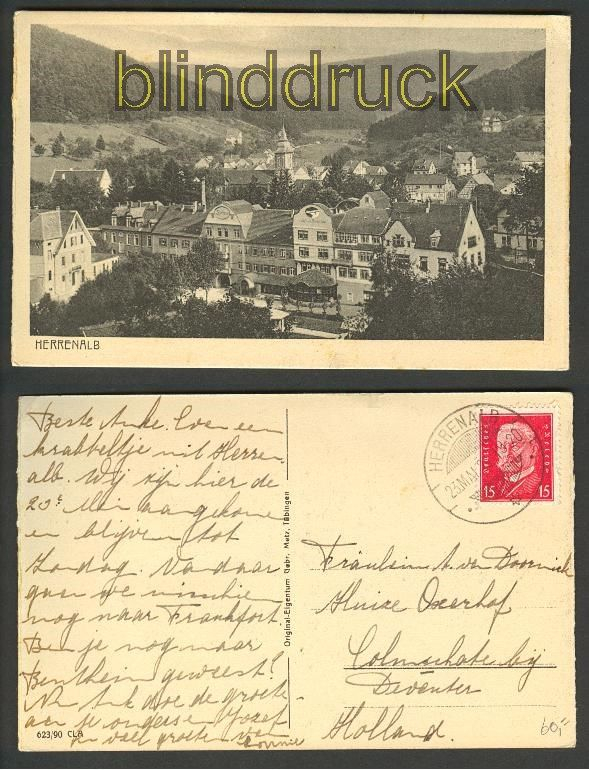 blinddruck
HERRENALB
Beste Anke. Even een
krabbeltje uit Herren
alb. Wij zijn hier de
23e Mei aangekomen
en blijven tot
Zondag. Vandaar
gaan we misschien
nog naar Frankfort.
Ben je nog naar
Bentheim geweest?
de groeten
aan je
en veel groeten van
Connie
623/90 CLA
Original-Eigentum Gebr. Metz, Tübingen
HERRENALB
23.MAI
Deutsches Reich
15 15
Fräulein A. van Doorninck
Huize Oxerhof
Colmschate bij
Deventer
Holland.
60,-